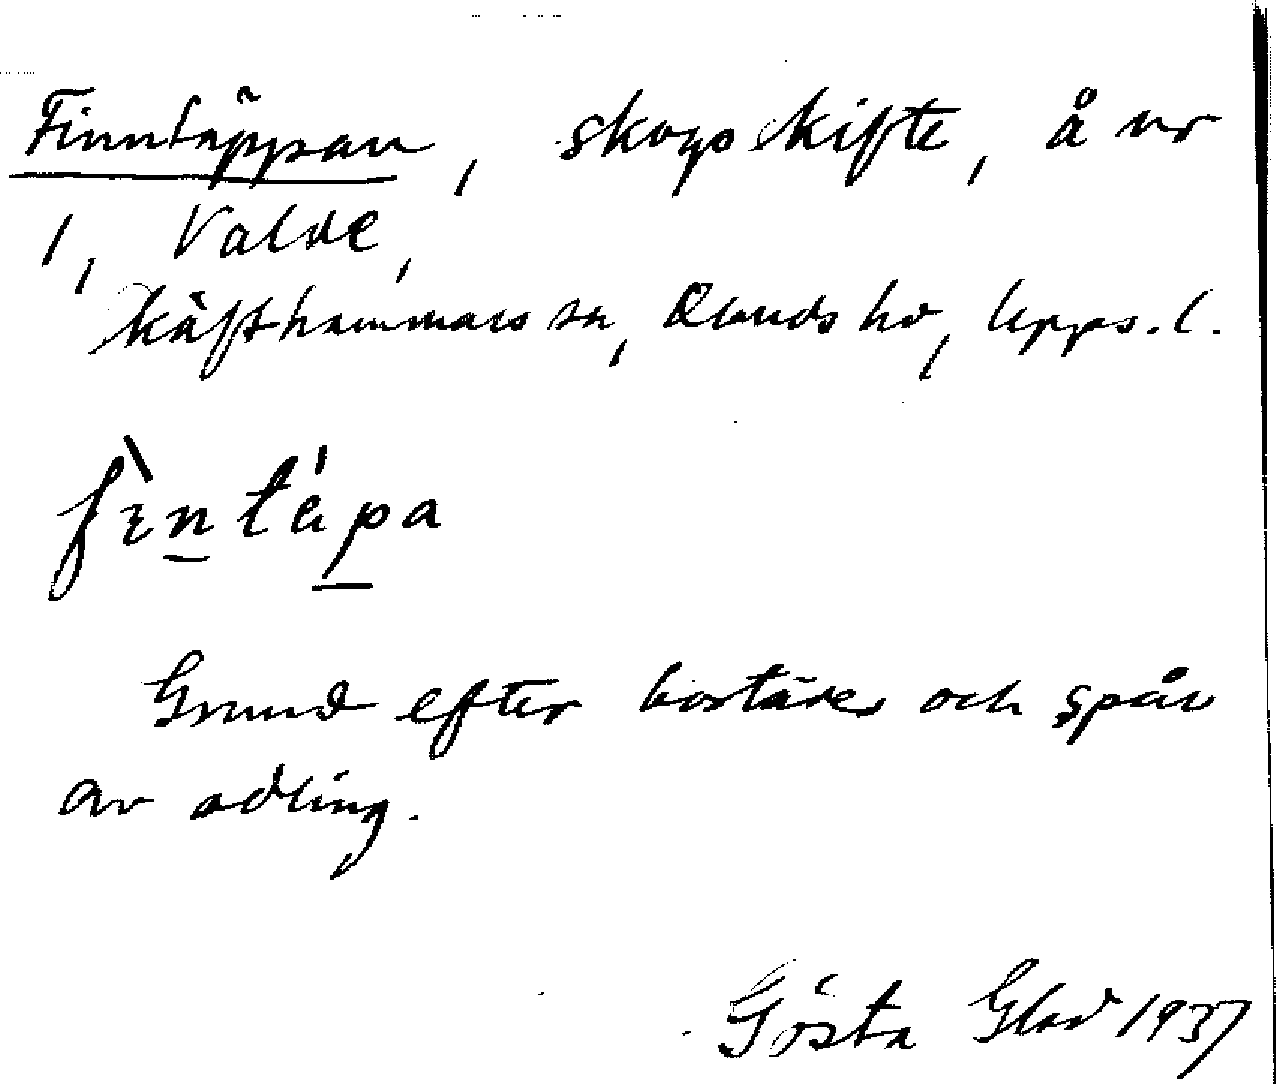 Finntäppan, skogsskifte, å nr
1, Valde,
Käfthammars sn, Olands hd, Upps. l.
fìntépa
Grund efter bostäder och spår
av odling.
Gösta Glad 1937